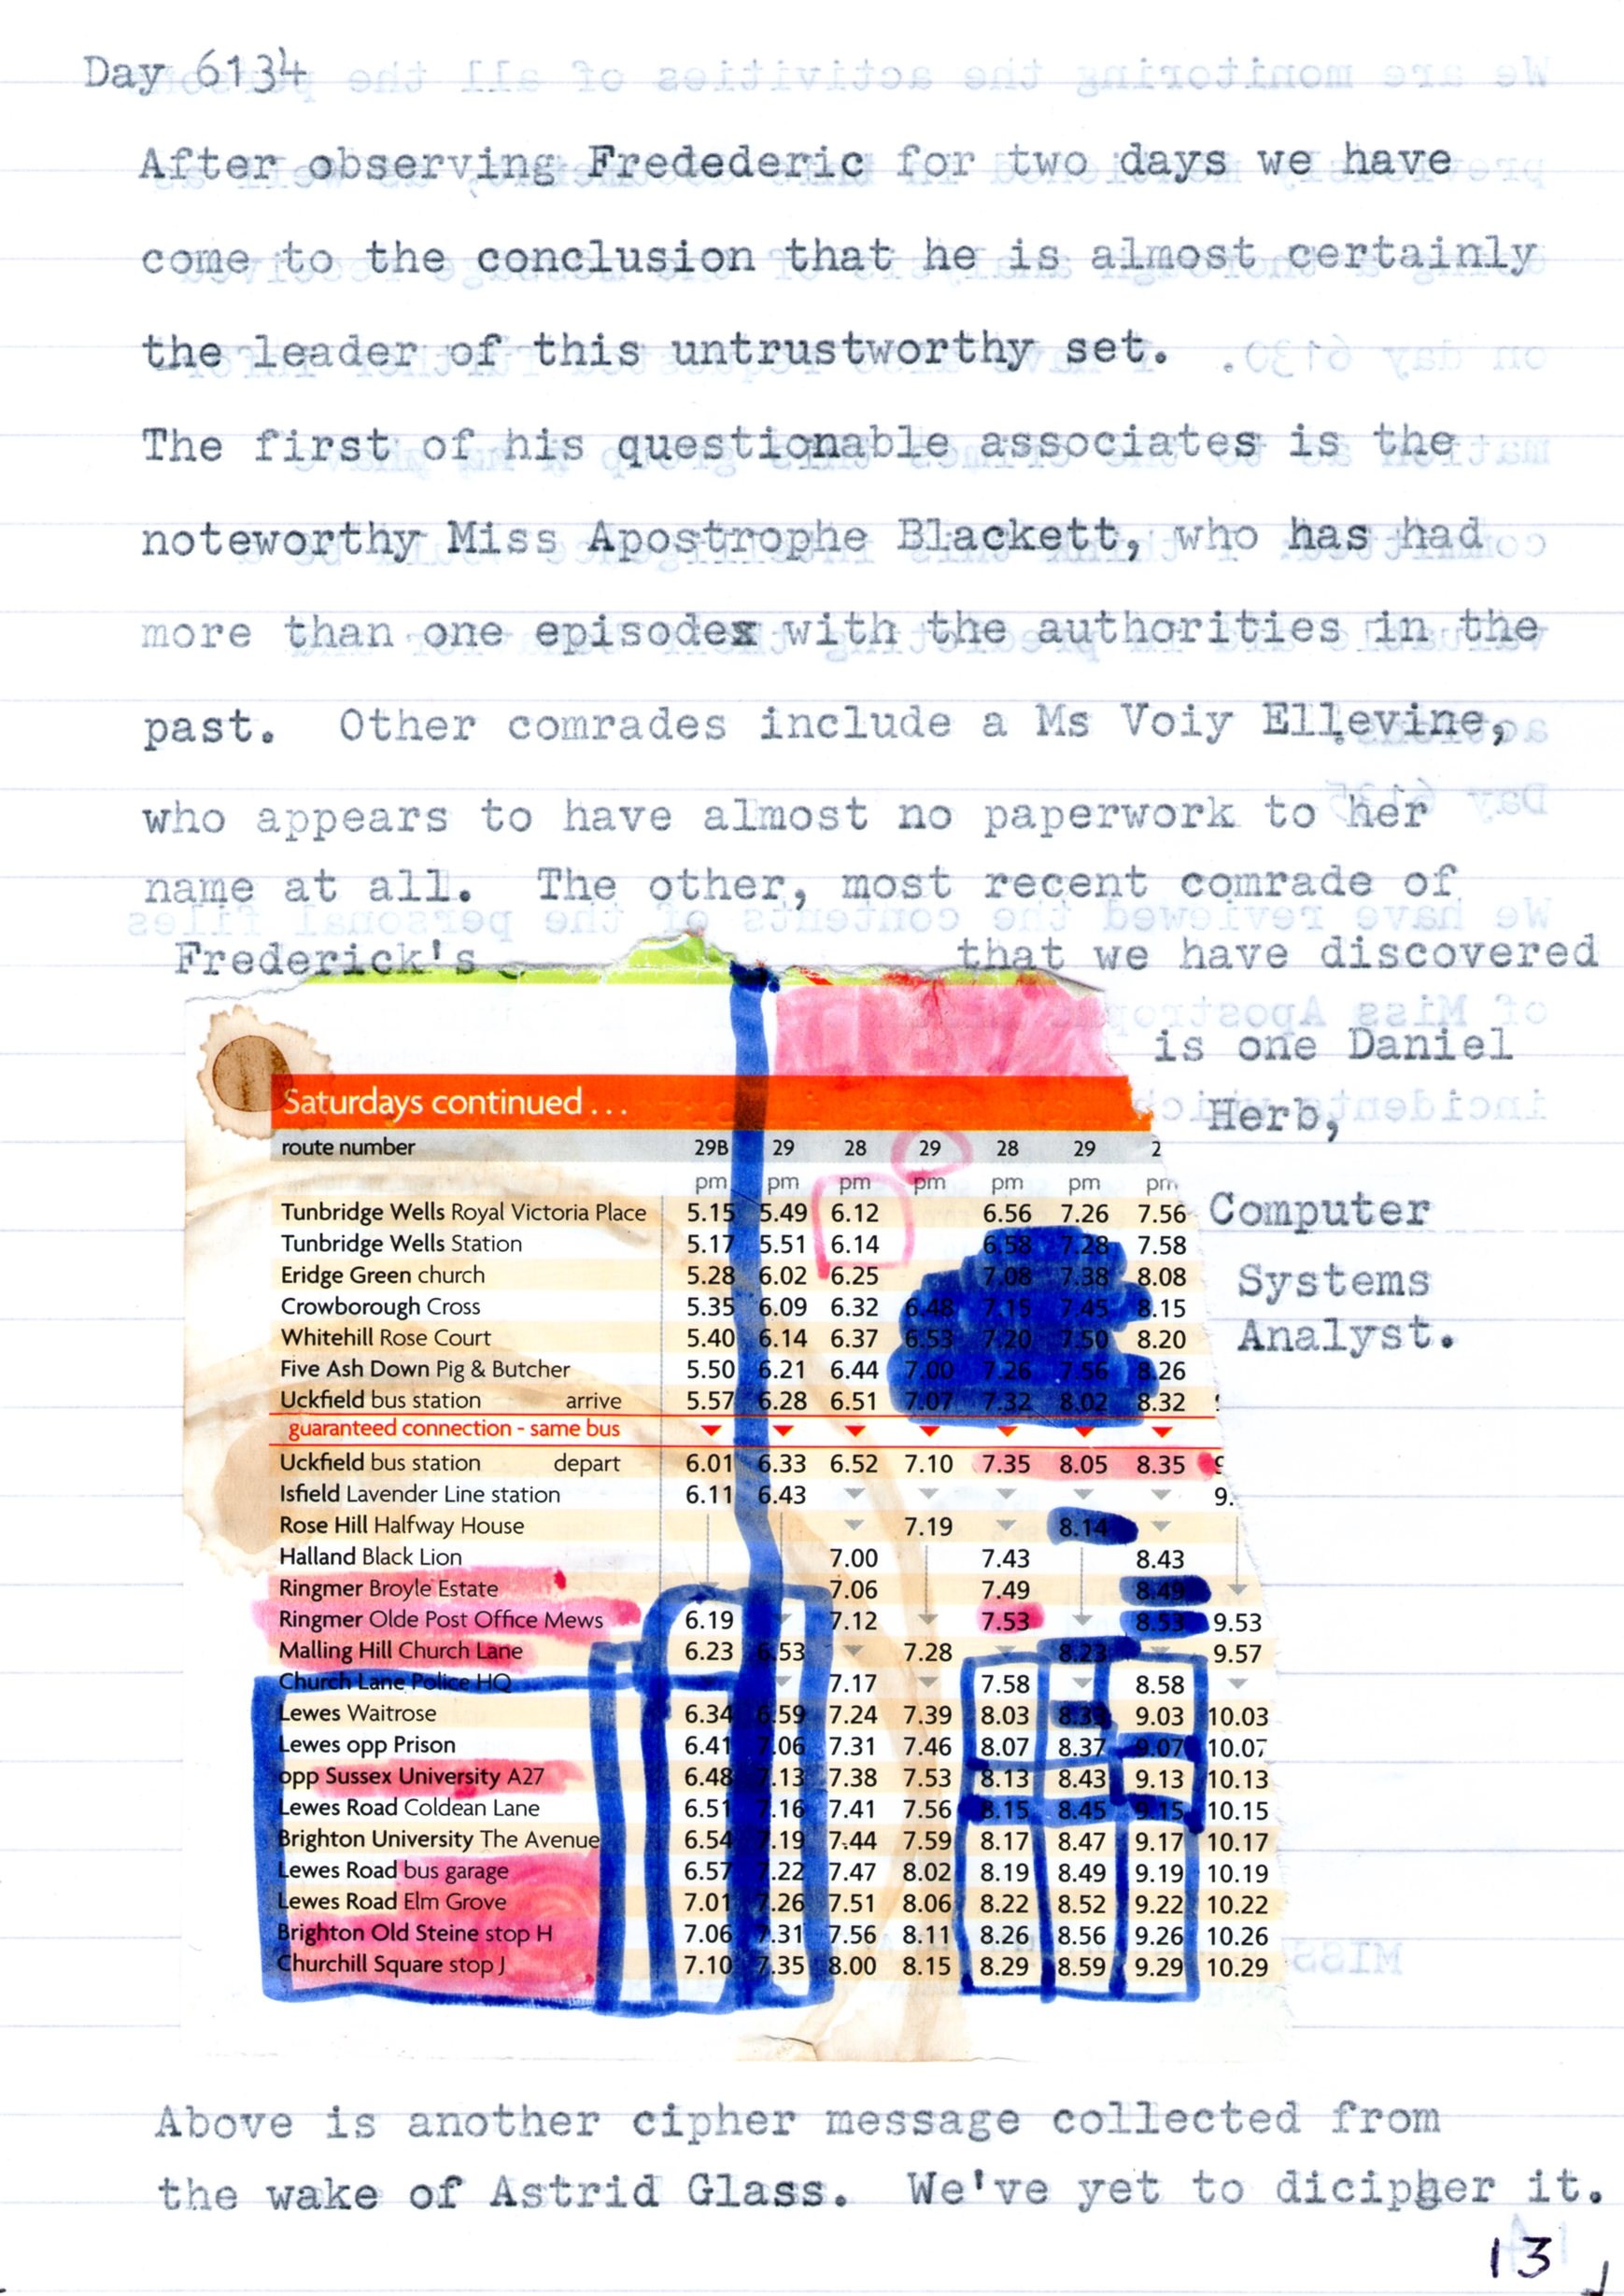 Day 6134
After observing Fredederic for two days we have
come to the conclusion that he is almost certainly
the leader of this untrustworthy set.
The first of his questionable associates is the
noteworthy Miss Apostrophe Blackett, who has had
more than one episodex with the authorities in the
past. Other comrades include a Ms Voiy Ellevine,
who appears to have almost no paperwork to her
name at all. The other, most recent comrade of
Frederick's that we have discovered
is one Daniel
Herb,
Computer
Systems
Analyst.
Saturdays continued ...
route number 29B 29 28 29 28 29 2
pm pm pm pm pm pm pm
Tunbridge Wells Royal Victoria Place 5.15 5.49 6.12 6.56 7.26 7.56
Tunbridge Wells Station 5.17 5.51 6.14 6.58 7.28 7.58
Eridge Green church 5.28 6.02 6.25 7.08 7.38 8.08
Crowborough Cross 5.35 6.09 6.32 6.48 7.15 7.45 8.15
Whitehill Rose Court 5.40 6.14 6.37 6.53 7.20 7.50 8.20
Five Ash Down Pig & Butcher 5.50 6.21 6.44 7.00 7.26 7.56 8.26
Uckfield bus station arrive 5.57 6.28 6.51 7.07 7.32 8.02 8.32
guaranteed connection - same bus
Uckfield bus station depart 6.01 6.33 6.52 7.10 7.35 8.05 8.35
Isfield Lavender Line station 6.11 6.43 9.
Rose Hill Halfway House 7.19 8.14
Halland Black Lion 7.00 7.43 8.43
Ringmer Broyle Estate 7.06 7.49 8.49
Ringmer Olde Post Office Mews 6.19 7.12 7.53 8.53 9.53
Malling Hill Church Lane 6.23 6.53 7.28 8.23 9.57
Church Lane Police HQ 7.17 7.58 8.58
Lewes Waitrose 6.34 6.59 7.24 7.39 8.03 9.03 10.03
Lewes opp Prison 6.41 7.06 7.31 7.46 8.07 8.37 9.07 10.07
opp Sussex University A27 6.48 7.13 7.38 7.53 8.13 8.43 9.13 10.13
Lewes Road Coldean Lane 6.51 7.16 7.41 7.56 8.15 8.45 9.15 10.15
Brighton University The Avenue 6.54 7.19 7.44 7.59 8.17 8.47 9.17 10.17
Lewes Road bus garage 6.57 7.22 7.47 8.02 8.19 8.49 9.19 10.19
Lewes Road Elm Grove 7.01 7.26 7.51 8.06 8.22 8.52 9.22 10.22
Brighton Old Steine stop H 7.06 7.31 7.56 8.11 8.26 8.56 9.26 10.26
Churchill Square stop J 7.10 7.35 8.00 8.15 8.29 8.59 9.29 10.29
Above is another cipher message collected from
the wake of Astrid Glass. We've yet to dicipher it.
13